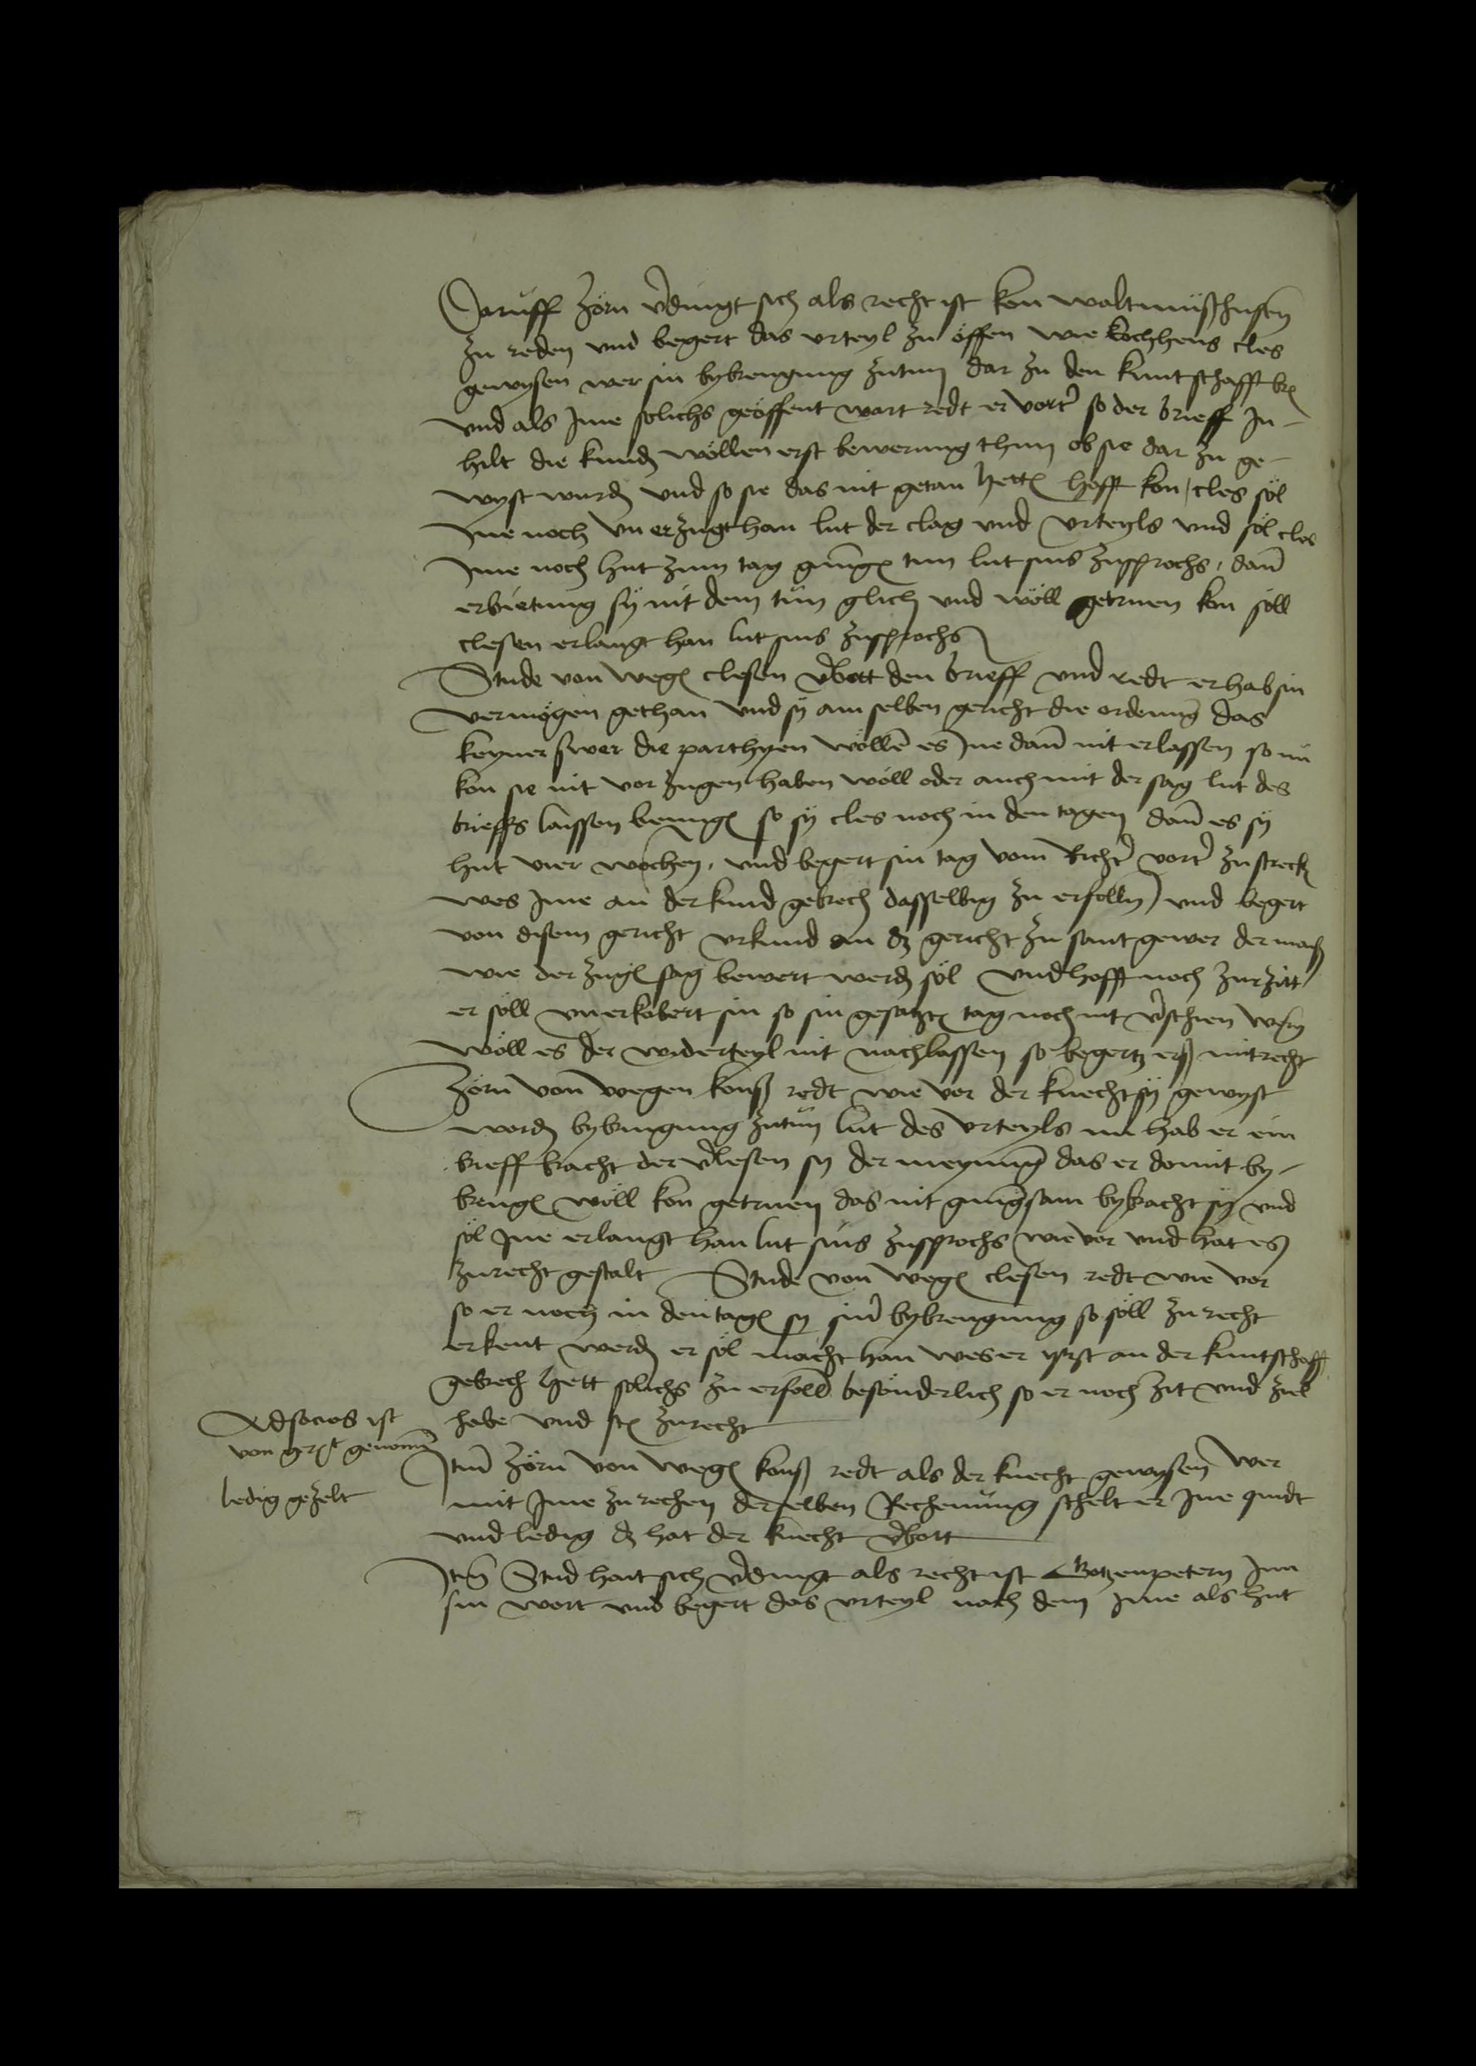 Daruff Zörn v̄dingt sich als recht ist kon waltmüßhusen
zu reden und begert das urteyl zu öffen wie kochhens cles
gewysen wer sin bybrengung zutun dar zu den kuntschafft br
und als Ime solichs geöffent wart redt er vort̄ so der brieff In-
hilt die kund wöllen erst bewerung thun ob sie dar zu ge-
wyst wurd und so sie das nit getan hett hofft kon cles söl
Ine noch un erzugt han lut der clag und urteyls und söl cles
Ime noch hut zum tag tun lut sins zusprochs, dan̄
erbietung sÿ nit dem tün glich und wöll getruen kon söll
clesen erlangt han lut sins zusprochs
Stude von weg clesen v̄bott den brieff und redt er hab sin
vermögen gethan und sÿ am selben gericht die ordenung das
keyner swer die parthyen wöllē es Ine dan̄ nit erlassen so nü
kon sie nit vor zugen haben wöll oder auch mit der sag lut des
brieffs laissen benug so sÿ cles noch in den tagen dan̄ es sÿ
hut vier wochen, und begert sin tag vom Richt̄ vort̄ zu streck
wes Ime an der kund gebrech dasselbig zu erfolln und begert
von disem gericht urkund an dz gericht zu sant gewer der maß
wie der zug sag bewert werd söl und hofft noch zur zitt
er söll un erkobert sin so sin gesatzt tag noch nit v̄schien
wöll es der widerteyl nit nachlassen so begertz erß mit recht
Zörn von wegen konß redt wie vor der knecht sÿ gewyst
word bybringung zutün lut des urteyls nu hab er ein
brieff bracht der v̄lesen sy der meynung das er domit by-
breng wöll kon getruen das nit gnugsam bybracht sÿ und
söl Ine erlangt han lut sins zusprochs wie vor und hat es
zu recht gestalt Stude von weg clesen redt wie vor
so er noch in den tag sy sin̄ bybrengung so söll zu recht
erkent werd er söl macht han wes er yzt an der kuntschafft
gebrech hett solichs zu erfoll besönderlich so er noch zit und ziel
habe und zurecht
Adsocios ist
von gericht genom̄
ledig gezelt
Item Zörn von weg konß redt als der knecht gewysen wer
mit Ime zu rechen derselben Rechenung schelt er Ine quidt
und ledig dz hat der knecht v̄bott
Item Stud hait sich v̄dingt als recht ist Botzenpetern Inn
sin wort und begert das urteyl nach dem Ime als hut